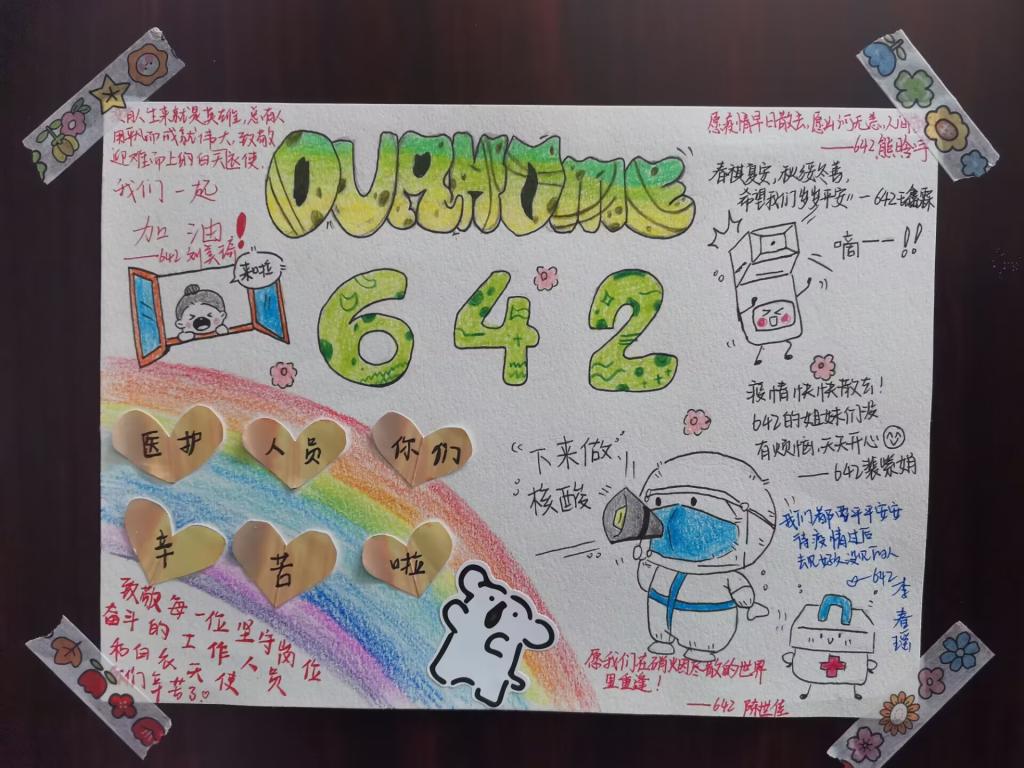 有人生来就是英雄，总有人
因平凡而成就伟大，致敬
迎难而上的白天使，
我们一起
加油！
——642 刘美琦
来啦
OUR HOME
642
愿疫情早日散去，愿山河无恙，人间
——642 熊
春祺夏安，秋绥冬善，
希望我们岁岁平安"——642 鑫霖
嘀——!!
疫情快快散去！
642的姐妹们没
有烦恼，天天开心
——642 裴紫娟
医护 人员 你们
辛 苦 啦
"下来做"
核酸
我们都要平平安安
待疫情过后
去见好久没见的人
——642 李春瑶
致敬每一位坚守岗位
奋斗的工作人员
和白衣天使
你们辛苦了
愿我们在硝烟尽散的世界
里重逢！
——642 陈世佳